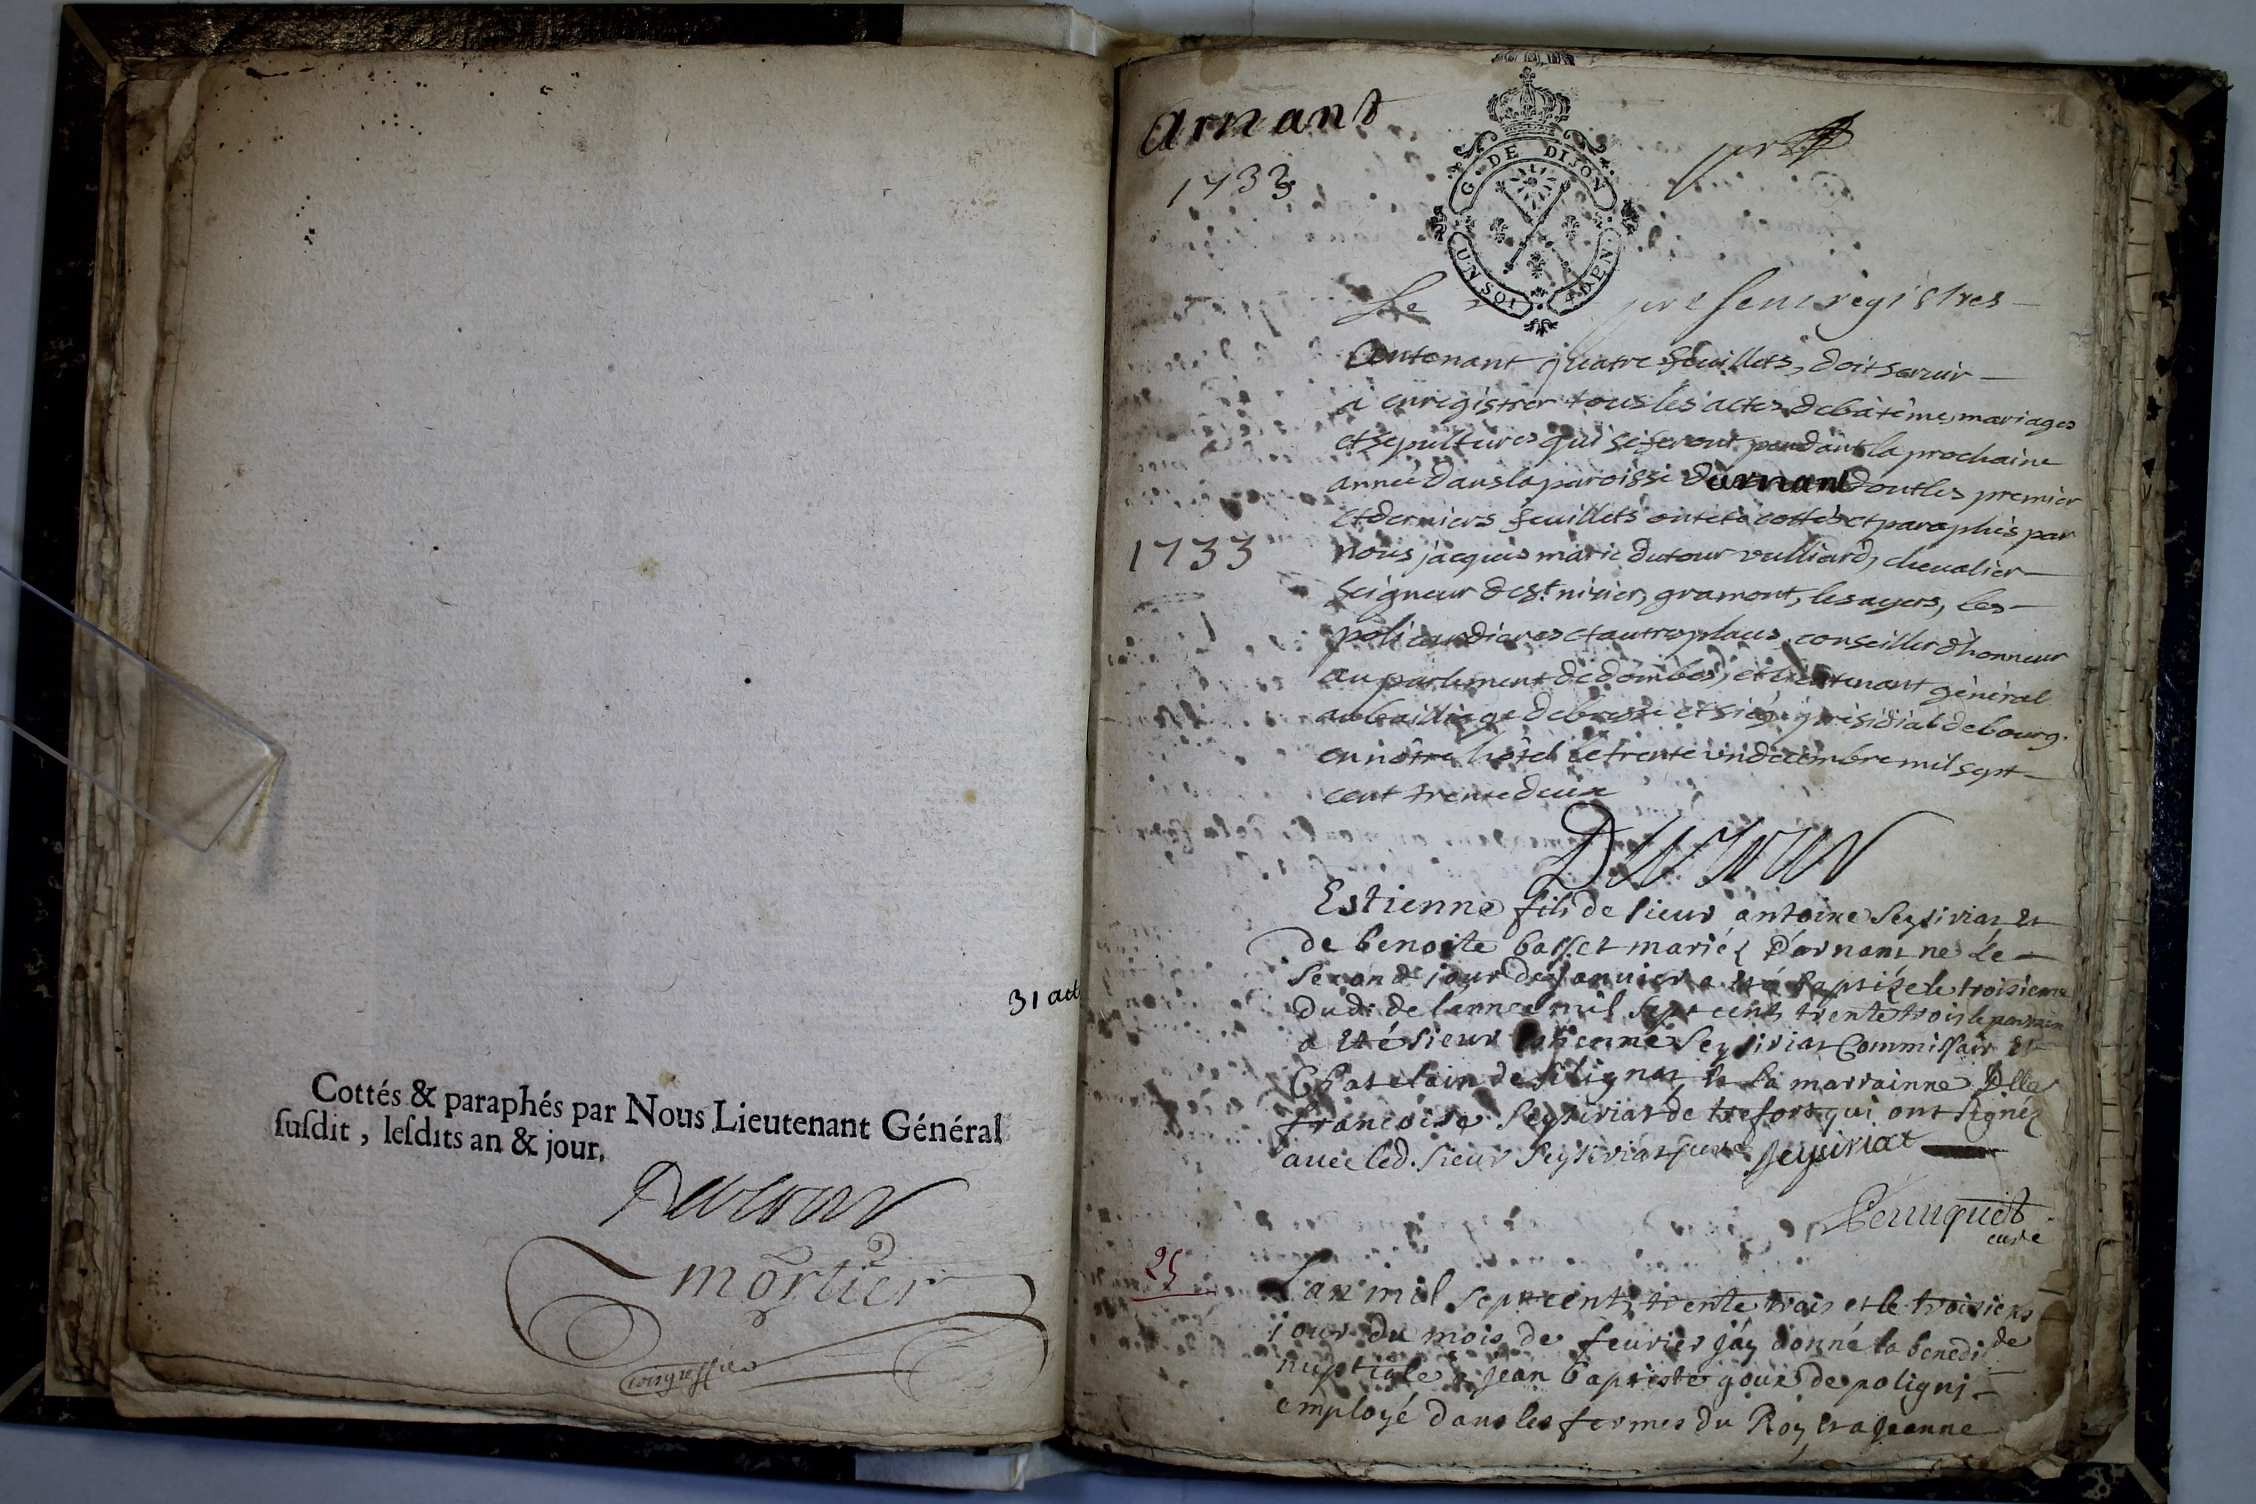 31 act
Cottés & paraphés par Nous Lieutenant Général
ſuſdit, leſdits an & jour.
Dutour
mortier
Arnant
1733
G. DE DIJON
UN SOL 4 DEN.
Le present registres
Contenant quatre feuillets, doit servir
a enregistrer tous les actes de batême, mariages
et sepultures qui se feront pendant la prochaine
année dans la paroisse d'arnant dont les premier
et derniers feuillets ont eté cottés et paraphés par
1733
nous jacques marie dutour vulliard, chevalier
seigneur de st. nizier, gramont, les ayers, les
et autres places, conseiller d'honneur
au parlement de dombes, et lieutenant général
au bailliage de bresse et siège présidial de bourg.
en nôtre hôtel le trente un décembre mil sept
cent trente deux
Dutour
Estienne fils de sieur antoine Seysiriat et
de benoite basset mariéz d'arnant né Le
second jour de janvier a eté baptizé le troisieme
dud. de lannee mil sept cents trente trois le parrain
a eté sieur estienne Seysiriat Commissair et
Chatelain de et la marrainne Dlle
francoise Seysiriat de trefort qui ont signéz
avec led. sieur Seysiriat Seysiriat
Perruquet
curé
25
Lan mil sept cents trente trois et le troisieme
jour du mois de feurier j'ay donné la benedi de
nuptiale a jean baptiste goux de poligni
employé dans les fermes du Roy et a jeanne